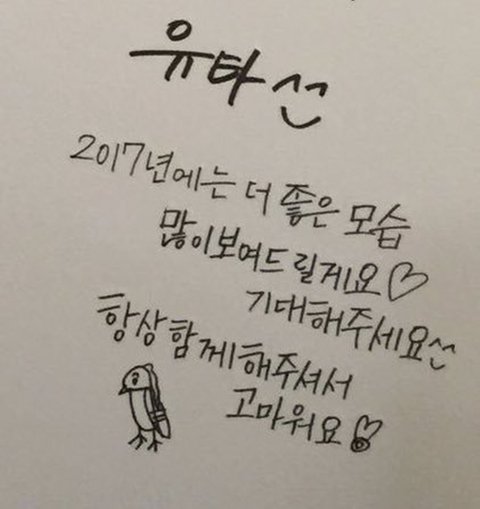 유타선
2017년에는 더 좋은 모습
많이보여드릴게요♡
기대해주세요
항상함께해주셔서
고마워요